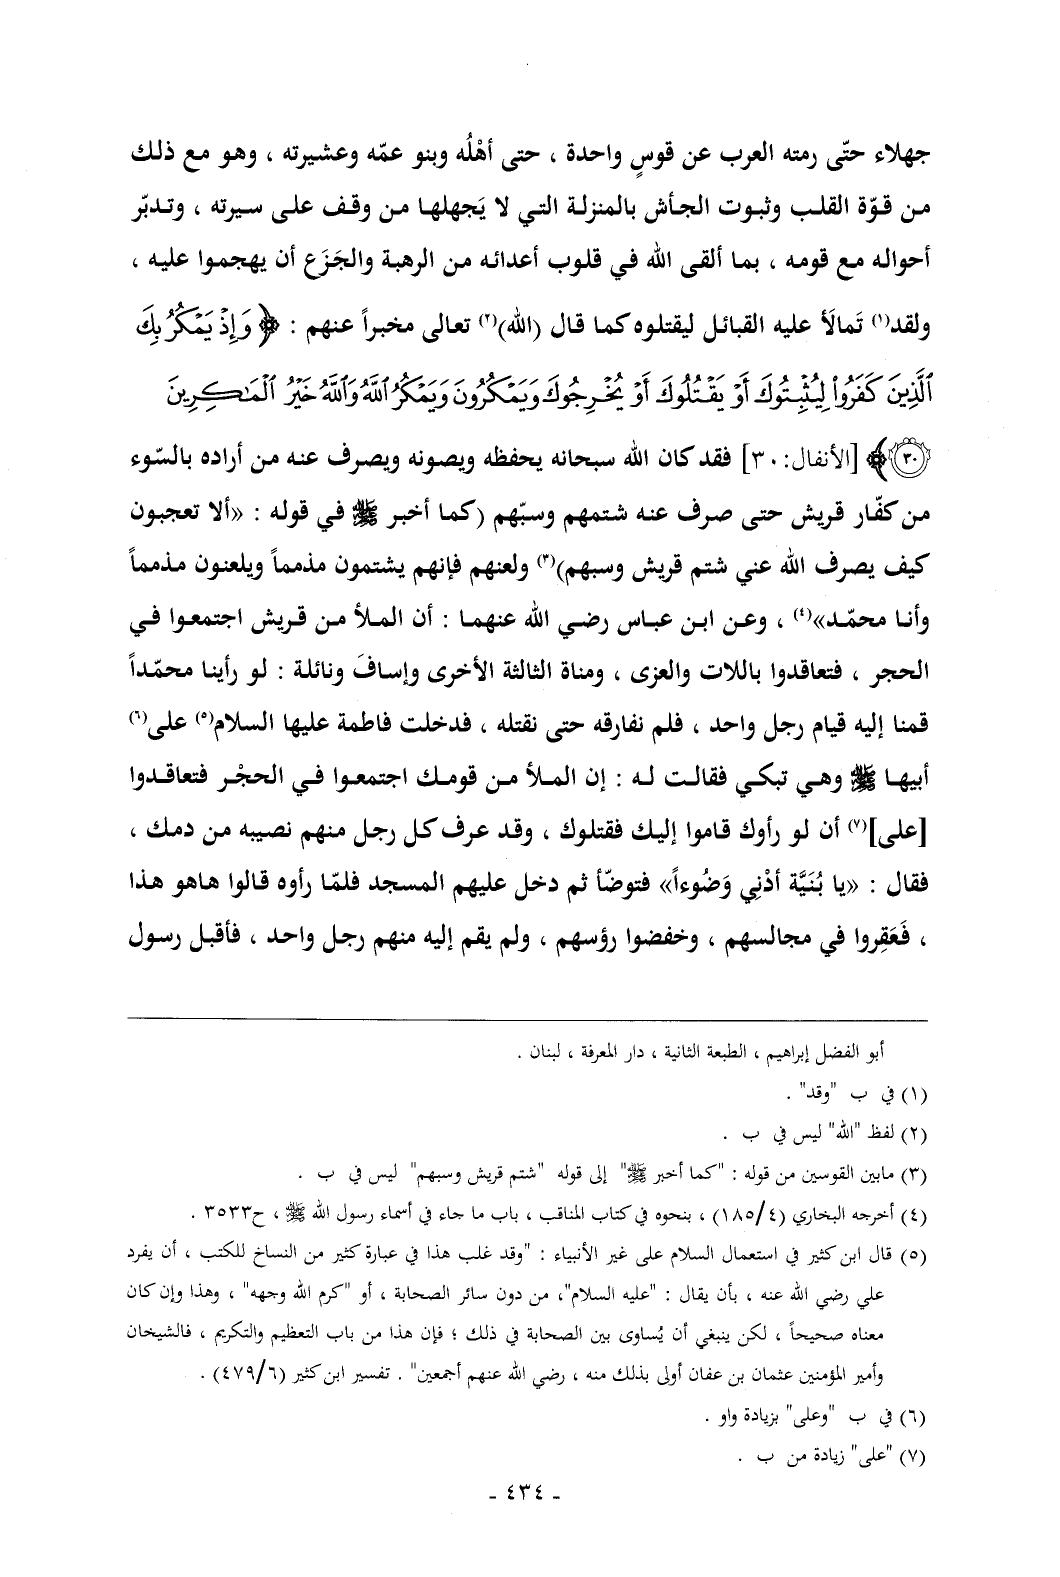 جهلاء حتّى رمته العرب عن قوسٍ واحدة ، حتى أهْلُه وبنو عمّه وعشيرته ، وهو مع ذلك
من قوّة القلب وثبوت الجأش بالمنزلة التي لا يَجهلها من وقف على سيرته ، وتدبّر
أحواله مع قومه ، بما ألقى الله في قلوب أعدائه من الرهبة والجَزَع أن يهجموا عليه ،
ولقد(١) تَمالَأ عليه القبائل ليقتلوه كما قال (الله)(٢) تعالى مخبراً عنهم : ﴿ وَإِذْ يَمْكُرُ بِكَ
ٱلَّذِينَ كَفَرُواْ لِيُثْبِتُوكَ أَوْ يَقْتُلُوكَ أَوْ يُخْرِجُوكَ وَيَمْكُرُونَ وَيَمْكُرُ ٱللَّهُ وَٱللَّهُ خَيْرُ ٱلْمَٰكِرِينَ
٣٠﴾ [الأنفال: ٣٠] فقد كان الله سبحانه يحفظه ويصونه ويصرف عنه من أراده بالسّوء
من كفّار قريش حتى صرف عنه شتمهم وسبّهم (كما أخبر ﷺ في قوله : «ألا تعجبون
كيف يصرف الله عني شتم قريش وسبهم)(٣) ولعنهم فإنهم يشتمون مذمماً ويلعنون مذمماً
وأنا محمّد»(٤) ، وعن ابن عباس رضي الله عنهما : أن الملأ من قريش اجتمعوا في
الحجر ، فتعاقدوا باللات والعزى ، ومناة الثالثة الأخرى وإسافَ ونائلة : لو رأينا محمّداً
قمنا إليه قيام رجل واحد ، فلم نفارقه حتى نقتله ، فدخلت فاطمة عليها السلام(٥) على(٦)
أبيها ﷺ وهي تبكي فقالت له : إن الملأ من قومك اجتمعوا في الحجْر فتعاقدوا
[على](٧) أن لو رأوك قاموا إليك فقتلوك ، وقد عرف كل رجل منهم نصيبه من دمك ،
فقال : «يا بُنَيَّة أدْنِي وَضُوءاً» فتوضّأ ثم دخل عليهم المسجد فلمّا رأوه قالوا هاهو هذا
، فَعَقِروا في مجالسهم ، وخفضوا رؤسهم ، ولم يقم إليه منهم رجل واحد ، فأقبل رسول
أبو الفضل إبراهيم ، الطبعة الثانية ، دار المعرفة ، لبنان .
(١) في ب "وقد" .
(٢) لفظ "الله" ليس في ب .
(٣) مابين القوسين من قوله : "كما أخبر ﷺ" إلى قوله "شتم قريش وسبهم" ليس في ب .
(٤) أخرجه البخاري (١٨٥/٤) ، بنحوه في كتاب المناقب ، باب ما جاء في أسماء رسول الله ﷺ ، ح٣٥٣٣ .
(٥) قال ابن كثير في استعمال السلام على غير الأنبياء : "وقد غلب هذا في عبارة كثير من النساخ للكتب ، أن يفرد
علي رضي الله عنه ، بأن يقال : "عليه السلام"، من دون سائر الصحابة ، أو "كرم الله وجهه" ، وهذا وإن كان
معناه صحيحاً ، لكن ينبغي أن يُساوى بين الصحابة في ذلك ؛ فإن هذا من باب التعظيم والتكريم ، فالشيخان
وأمير المؤمنين عثمان بن عفان أولى بذلك منه ، رضي الله عنهم أجمعين" . تفسير ابن كثير (٤٧٩/٦) .
(٦) في ب "وعلى" بزيادة واو .
(٧) "على" زيادة من ب .
- ٤٣٤ -